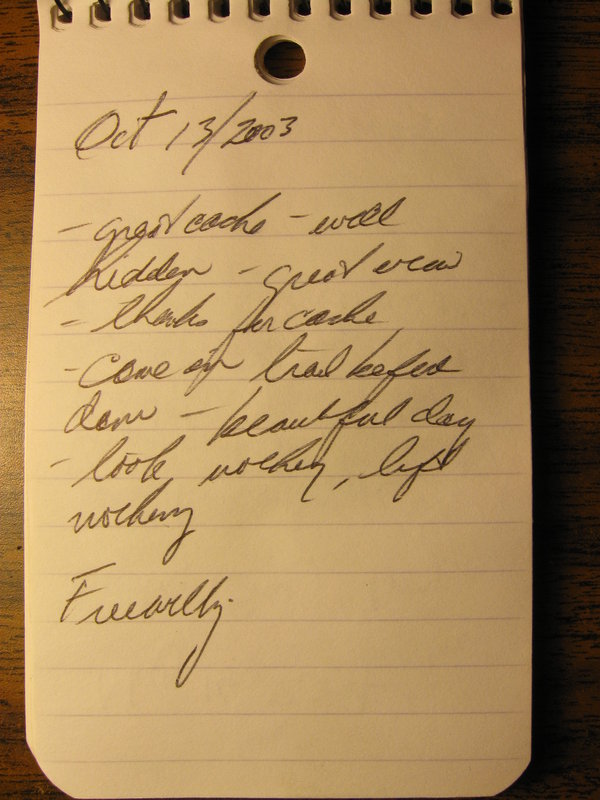 Oct 13/2003
- great cache - well
hidden - great view
- thanks for cache
- came on trail before
dam - beautiful day
- took nothing, left
nothing
Freewilly